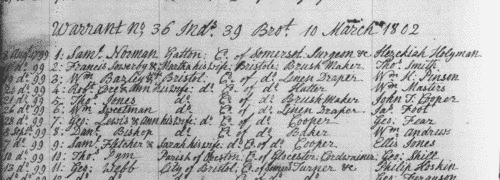 Warrant No 36 Ind. 39 Brot. 10 March 1802
99 1: Saml. Norman Yatton Co. of Somerset Surgeon & Hezekiah Holyman
d. 99 2: Francis & Martha his wife Bristol Brush Maker Thos. Smith
d. 99 3: Wm. Bazley & Bristol Co. of d. Linen Draper Wm. K. Pinson
d. 99 4: Robt. & Ann his wife d. Co. of d. Hatter Wm. Masters
d. 99 5: Thos. Jones d. Co. of d. Brush Maker John T. Cooper
d. 99 6: Wm. Sweetman d. Co. of d. Linen Draper Jas. Foot
d. 99 7: Geo. Lewis & Ann his wife d. Co. of d. Cooper Geo. Fear
Sept. 99 8: Danl. Bishop d. Co. of d. Baker Wm. Andrews
7 d. 99 9: Saml. Fletcher & Sarah his wife d. Co. of d. Cooper Ellis Jones
10 d. 99 10: Thos. Pym Parish of Co. of Glocester Cordwainer Geo. Shill
13 d. 99 11: Geo. Webb City of Bristol Co. of Turner & Philip Hoskin
Geo. Ferguson